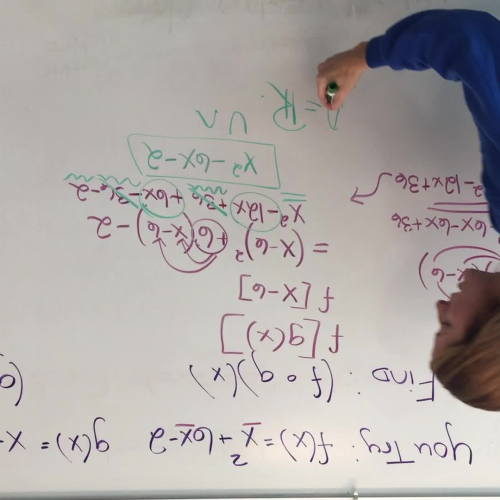 You Try: f(x) = x² + 6x - 2 g(x) = x -
Find: (f ∘ g)(x) (g
f[g(x)]
f[x-6]
= (x-6)² + 6(x-6) - 2
x² - 12x + 36 + 6x - 36 - 2
x² - 6x - 2
= ℝ.
x-6)
6x - 6x + 36
² - 12x + 36